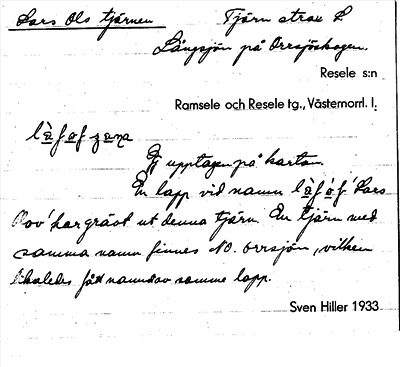 Lars Ols tjärnen
Tjärn strax S
Långsjön på Orrsjöskogen.
Resele s:n
Ramsele och Resele tg., Västernorrl. l.
Ej upptagen på kartan.
En lapp vid namn Lars
har grävt ut denna tjärn. En tjärn med
samma namn finnes NO. Orrsjön, vilken
likaledes fått namn av samme lapp.
Sven Hiller 1933